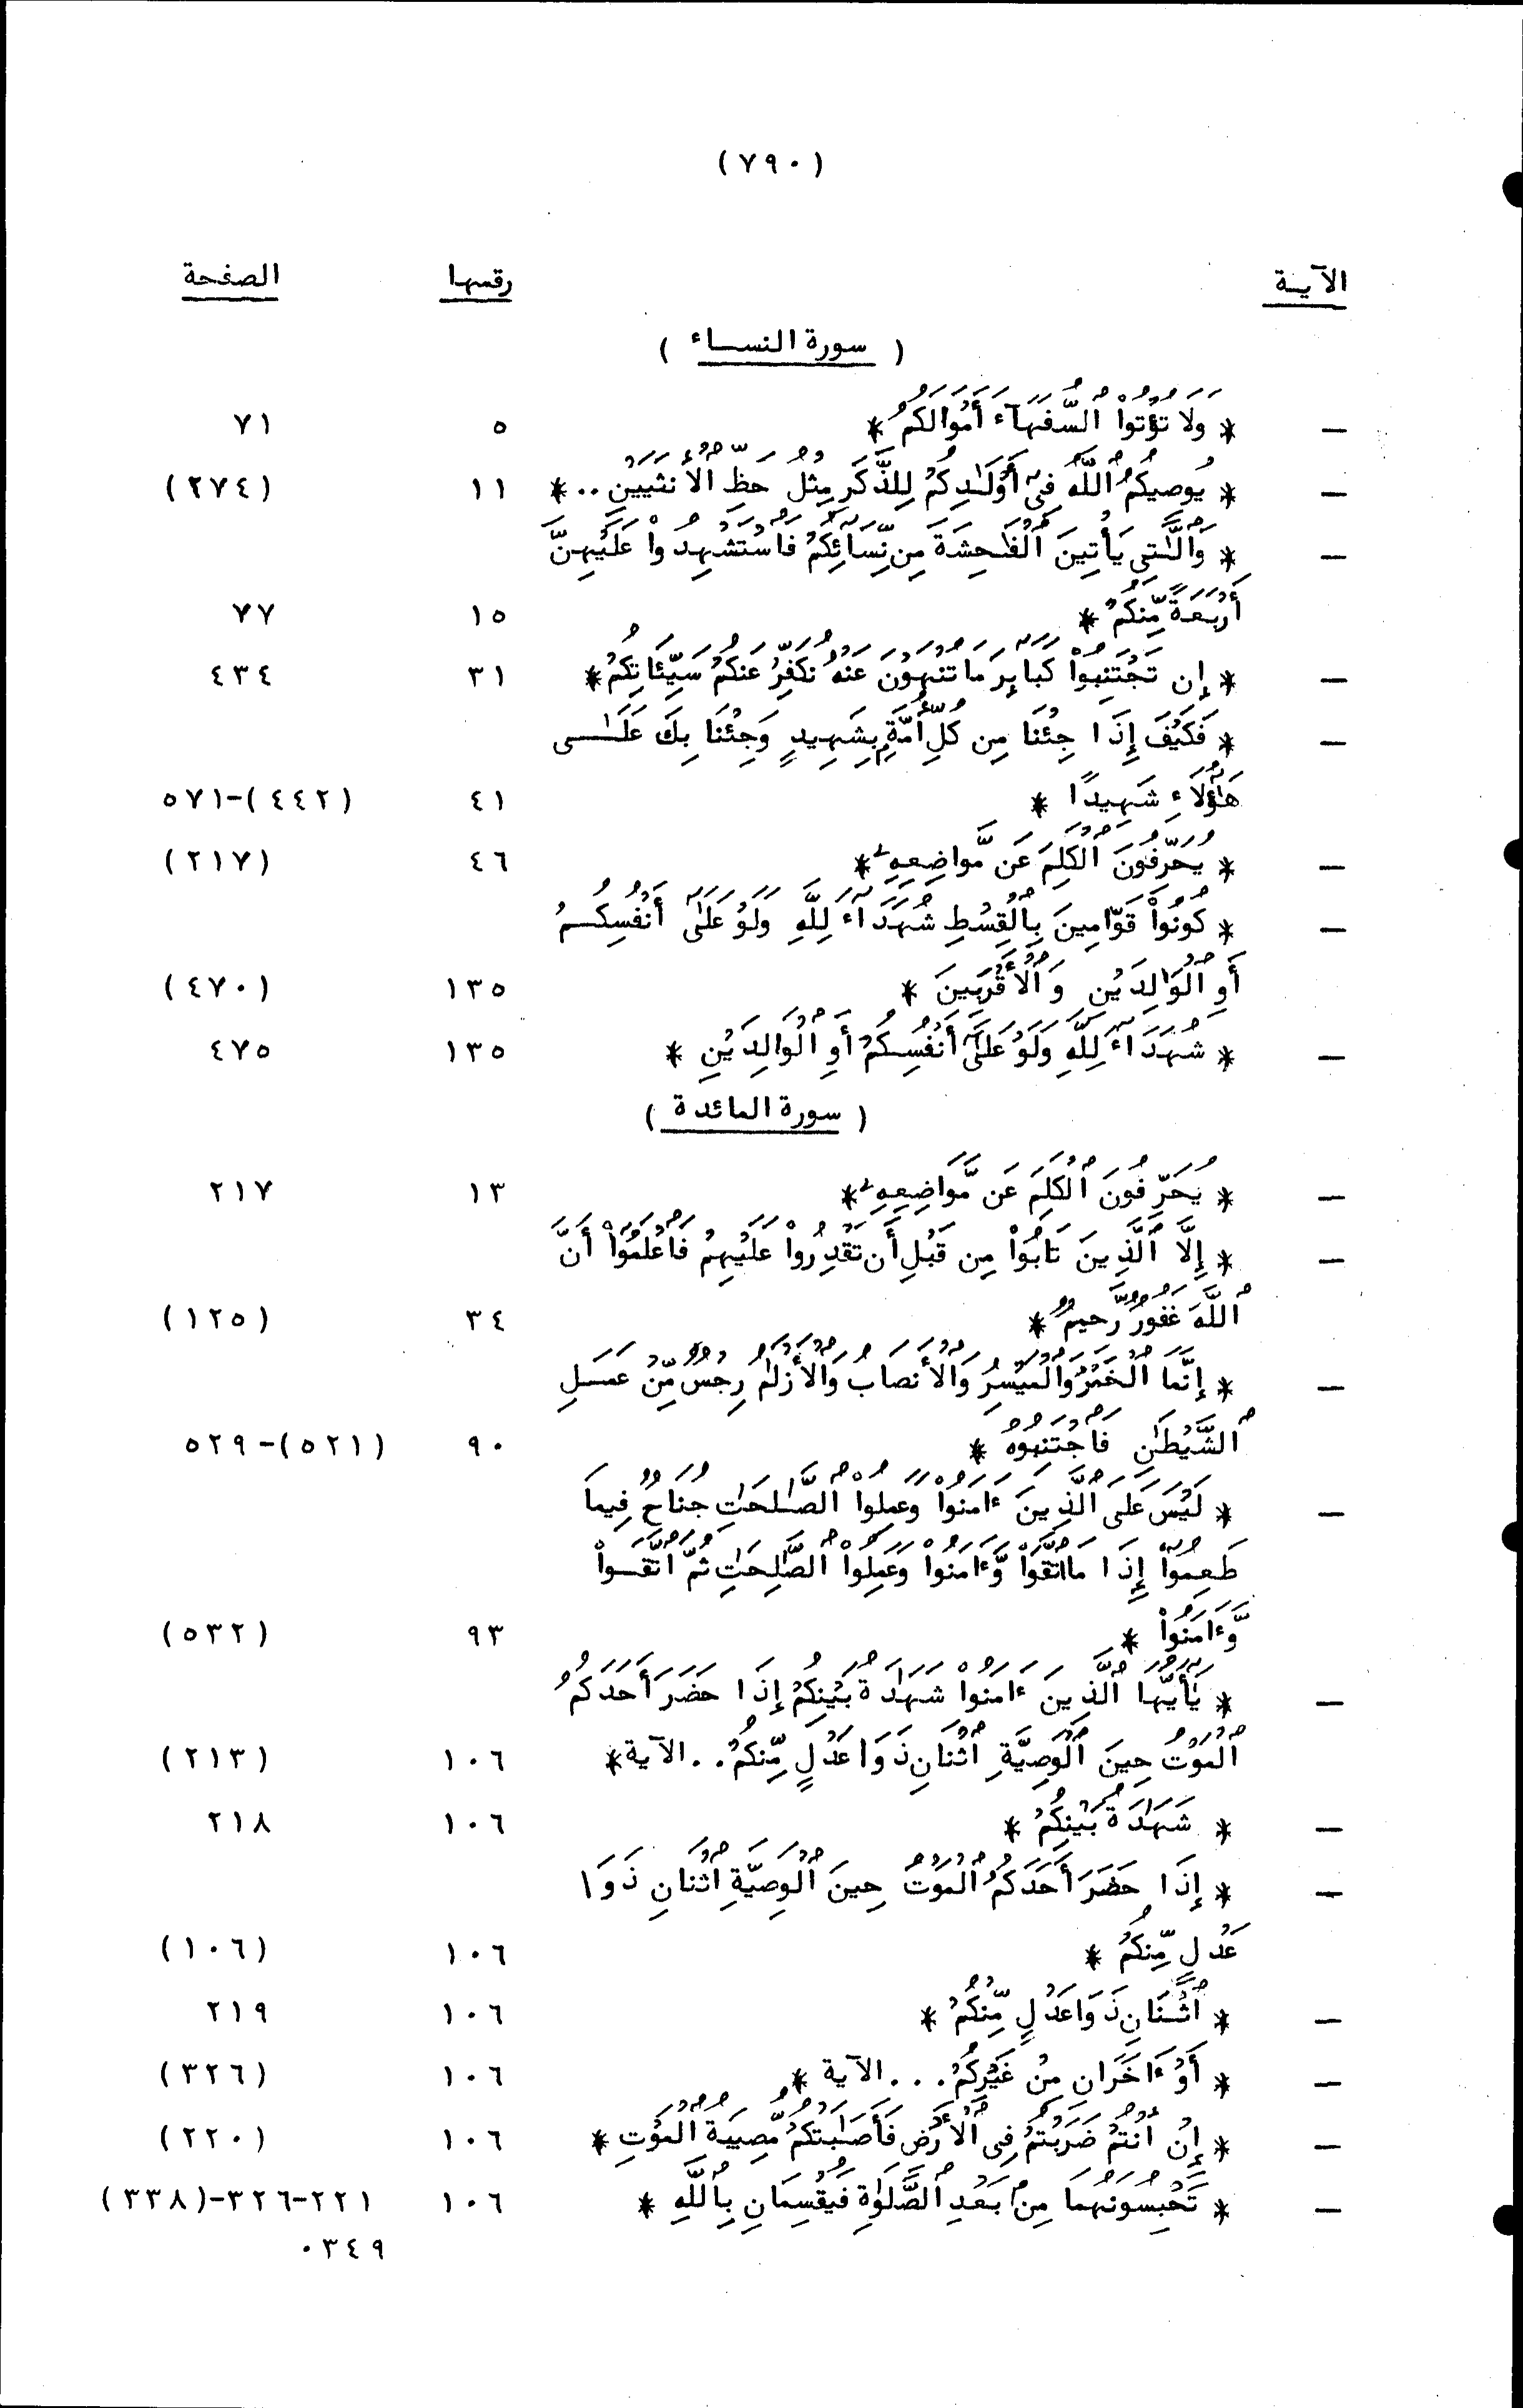 (٧٩٠)
الآية رقمها الصفحة
( سورة النساء )
— * وَلَا تُؤْتُواْ ٱلسُّفَهَآءَ أَمْوَالَكُمُ * ٥ ٧١
— * يُوصِيكُمُ ٱللَّهُ فِىٓ أَوْلَـٰدِكُمْ لِلذَّكَرِ مِثْلُ حَظِّ ٱلْأُنثَيَيْنِ .. * ١١ (٢٧٤)
— * وَٱلَّـٰتِى يَأْتِينَ ٱلْفَـٰحِشَةَ مِن نِّسَآئِكُمْ فَٱسْتَشْهِدُواْ عَلَيْهِنَّ
أَرْبَعَةً مِّنكُمْ * ١٥ ٧٧
— * إِن تَجْتَنِبُواْ كَبَآئِرَ مَا تُنْهَوْنَ عَنْهُ نُكَفِّرْ عَنكُمْ سَيِّـَٔاتِكُمْ * ٣١ ٤٣٤
— * فَكَيْفَ إِذَا جِئْنَا مِن كُلِّ أُمَّةٍۭ بِشَهِيدٍ وَجِئْنَا بِكَ عَلَـٰى
هَـٰٓؤُلَآءِ شَهِيدًا * ٤١ (٤٤٢)-٥٧١
— * يُحَرِّفُونَ ٱلْكَلِمَ عَن مَّوَاضِعِهِۦ * ٤٦ (٢١٧)
— * كُونُواْ قَوَّامِينَ بِٱلْقِسْطِ شُهَدَآءَ لِلَّهِ وَلَوْ عَلَىٰٓ أَنْفُسِكُمْ
أَوِ ٱلْوَالِدَيْنِ وَٱلْأَقْرَبِينَ * ١٣٥ (٤٧٠)
— * شُهَدَآءَ لِلَّهِ وَلَوْ عَلَىٰٓ أَنْفُسِكُمْ أَوِ ٱلْوَالِدَيْنِ * ١٣٥ ٤٧٥
( سورة المائدة )
— * يُحَرِّفُونَ ٱلْكَلِمَ عَن مَّوَاضِعِهِۦ * ١٣ ٢١٧
— * إِلَّا ٱلَّذِينَ تَابُواْ مِن قَبْلِ أَن تَقْدِرُواْ عَلَيْهِمْ فَٱعْلَمُوٓاْ أَنَّ
ٱللَّهَ غَفُورٌ رَّحِيمٌ * ٣٤ (١٢٥)
— * إِنَّمَا ٱلْخَمْرُ وَٱلْمَيْسِرُ وَٱلْأَنصَابُ وَٱلْأَزْلَـٰمُ رِجْسٌ مِّنْ عَمَـلِ
ٱلشَّيْطَـٰنِ فَٱجْتَنِبُوهُ * ٩٠ (٥٢١)-٥٢٩
— * لَيْسَ عَلَى ٱلَّذِينَ ءَامَنُواْ وَعَمِلُواْ ٱلصَّـٰلِحَـٰتِ جُنَاحٌ فِيمَا
طَعِمُوٓاْ إِذَا مَا ٱتَّقَواْ وَّءَامَنُواْ وَعَمِلُواْ ٱلصَّـٰلِحَـٰتِ ثُمَّ ٱتَّقَـواْ
وَّءَامَنُواْ * ٩٣ (٥٣٢)
— * يَـٰٓأَيُّهَا ٱلَّذِينَ ءَامَنُواْ شَهَـٰدَةُ بَيْنِكُمْ إِذَا حَضَرَ أَحَدَكُمُ
ٱلْمَوْتُ حِينَ ٱلْوَصِيَّةِ ٱثْنَانِ ذَوَا عَدْلٍ مِّنكُمْ . . الآية * ١٠٦ (٢١٣)
— * شَهَـٰدَةُ بَيْنِكُمْ * ١٠٦ ٢١٨
— * إِذَا حَضَرَ أَحَدَكُمُ ٱلْمَوْتُ حِينَ ٱلْوَصِيَّةِ ٱثْنَانِ ذَوَا
عَدْلٍ مِّنكُمْ * ١٠٦ (١٠٦)
— * ٱثْـنَانِ ذَوَا عَدْلٍ مِّنكُمْ * ١٠٦ ٢١٩
— * أَوْ ءَاخَرَانِ مِنْ غَيْرِكُمْ . . . الآية * ١٠٦ (٣٢٦)
— * إِنْ أَنتُمْ ضَرَبْتُمْ فِى ٱلْأَرْضِ فَأَصَـٰبَتْكُم مُّصِيبَةُ ٱلْمَوْتِ * ١٠٦ (٢٢٠)
— * تَحْبِسُونَهُمَا مِنۢ بَعْدِ ٱلصَّلَوٰةِ فَيُقْسِمَانِ بِٱللَّهِ * ١٠٦ ٢٢١-٣٢٦-(٣٣٨)
٠٣٤٩